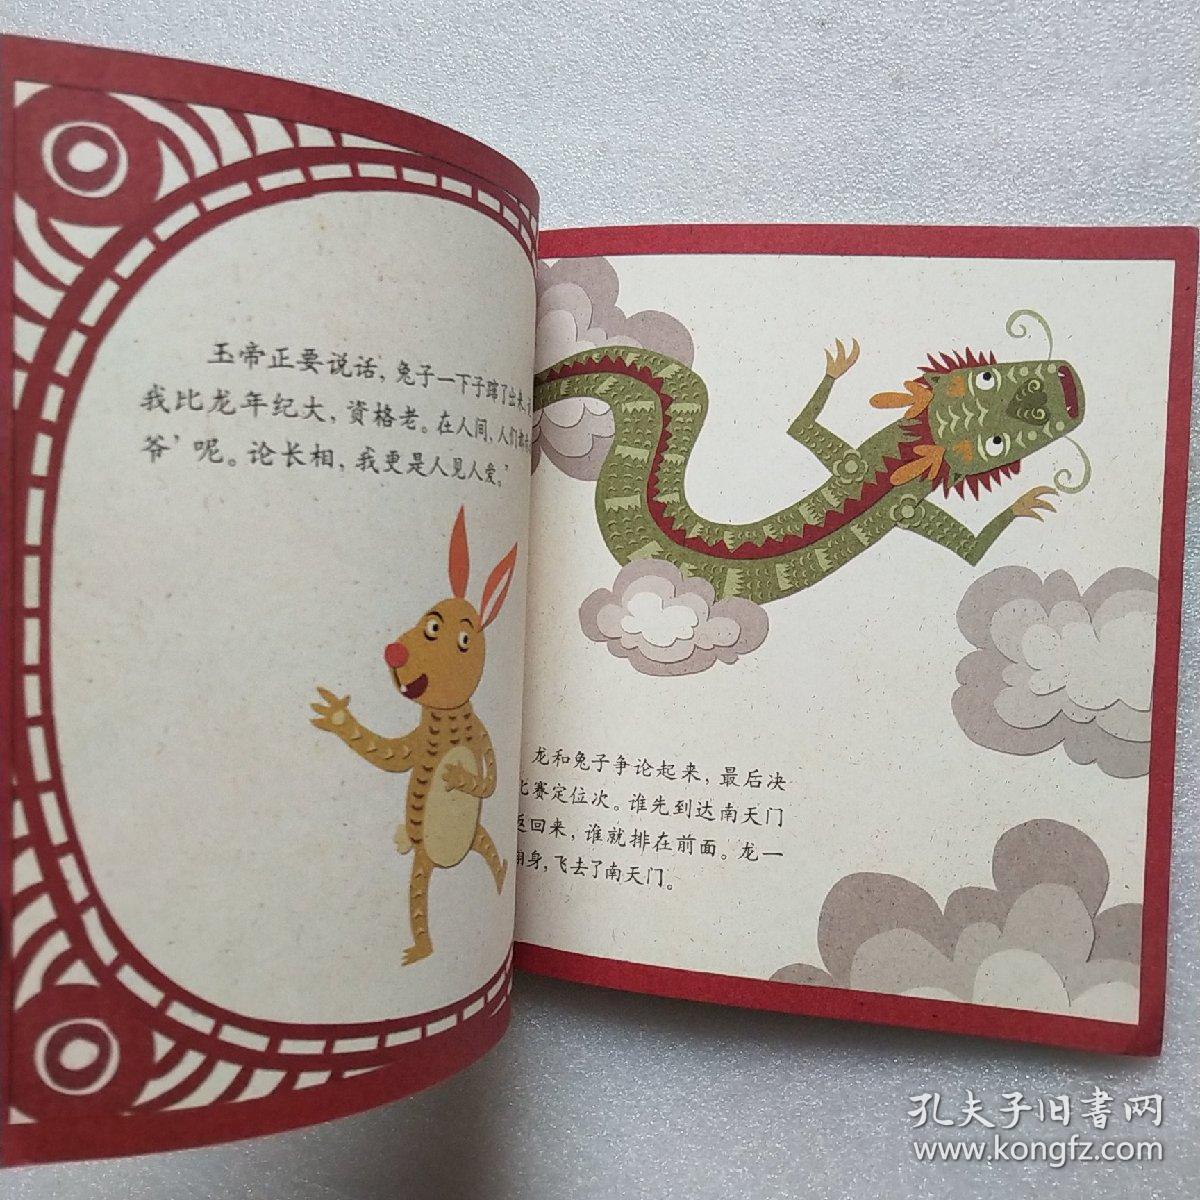 玉帝正要说话，兔子一下子蹿了出来
我比龙年纪大，资格老。在人间，人们都
爷’呢。论长相，我更是人见人爱。”
龙和兔子争论起来，最后决
比赛定位次。谁先到达南天门
返回来，谁就排在前面。龙一
身，飞去了南天门。
孔夫子旧書网
www.kongfz.com